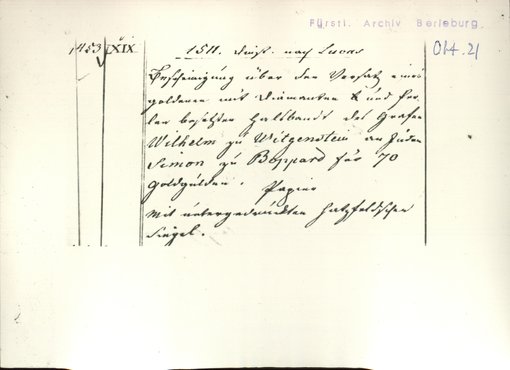 Fürstl. Archiv Berleburg.
Okt. 21
1453 XIX. 1511. Dinst. nach Lucas
Bescheinigung über den Versatz eines
goldenen mit Diamanten & und Per-
len besetzten Halsbands des Grafen
Wilhelm zu Witgenstein an Juden
Simon zu Boppard für 70
Goldgulden.
Papier
Mit untergedrückten Hatzfeldischen
Siegel.